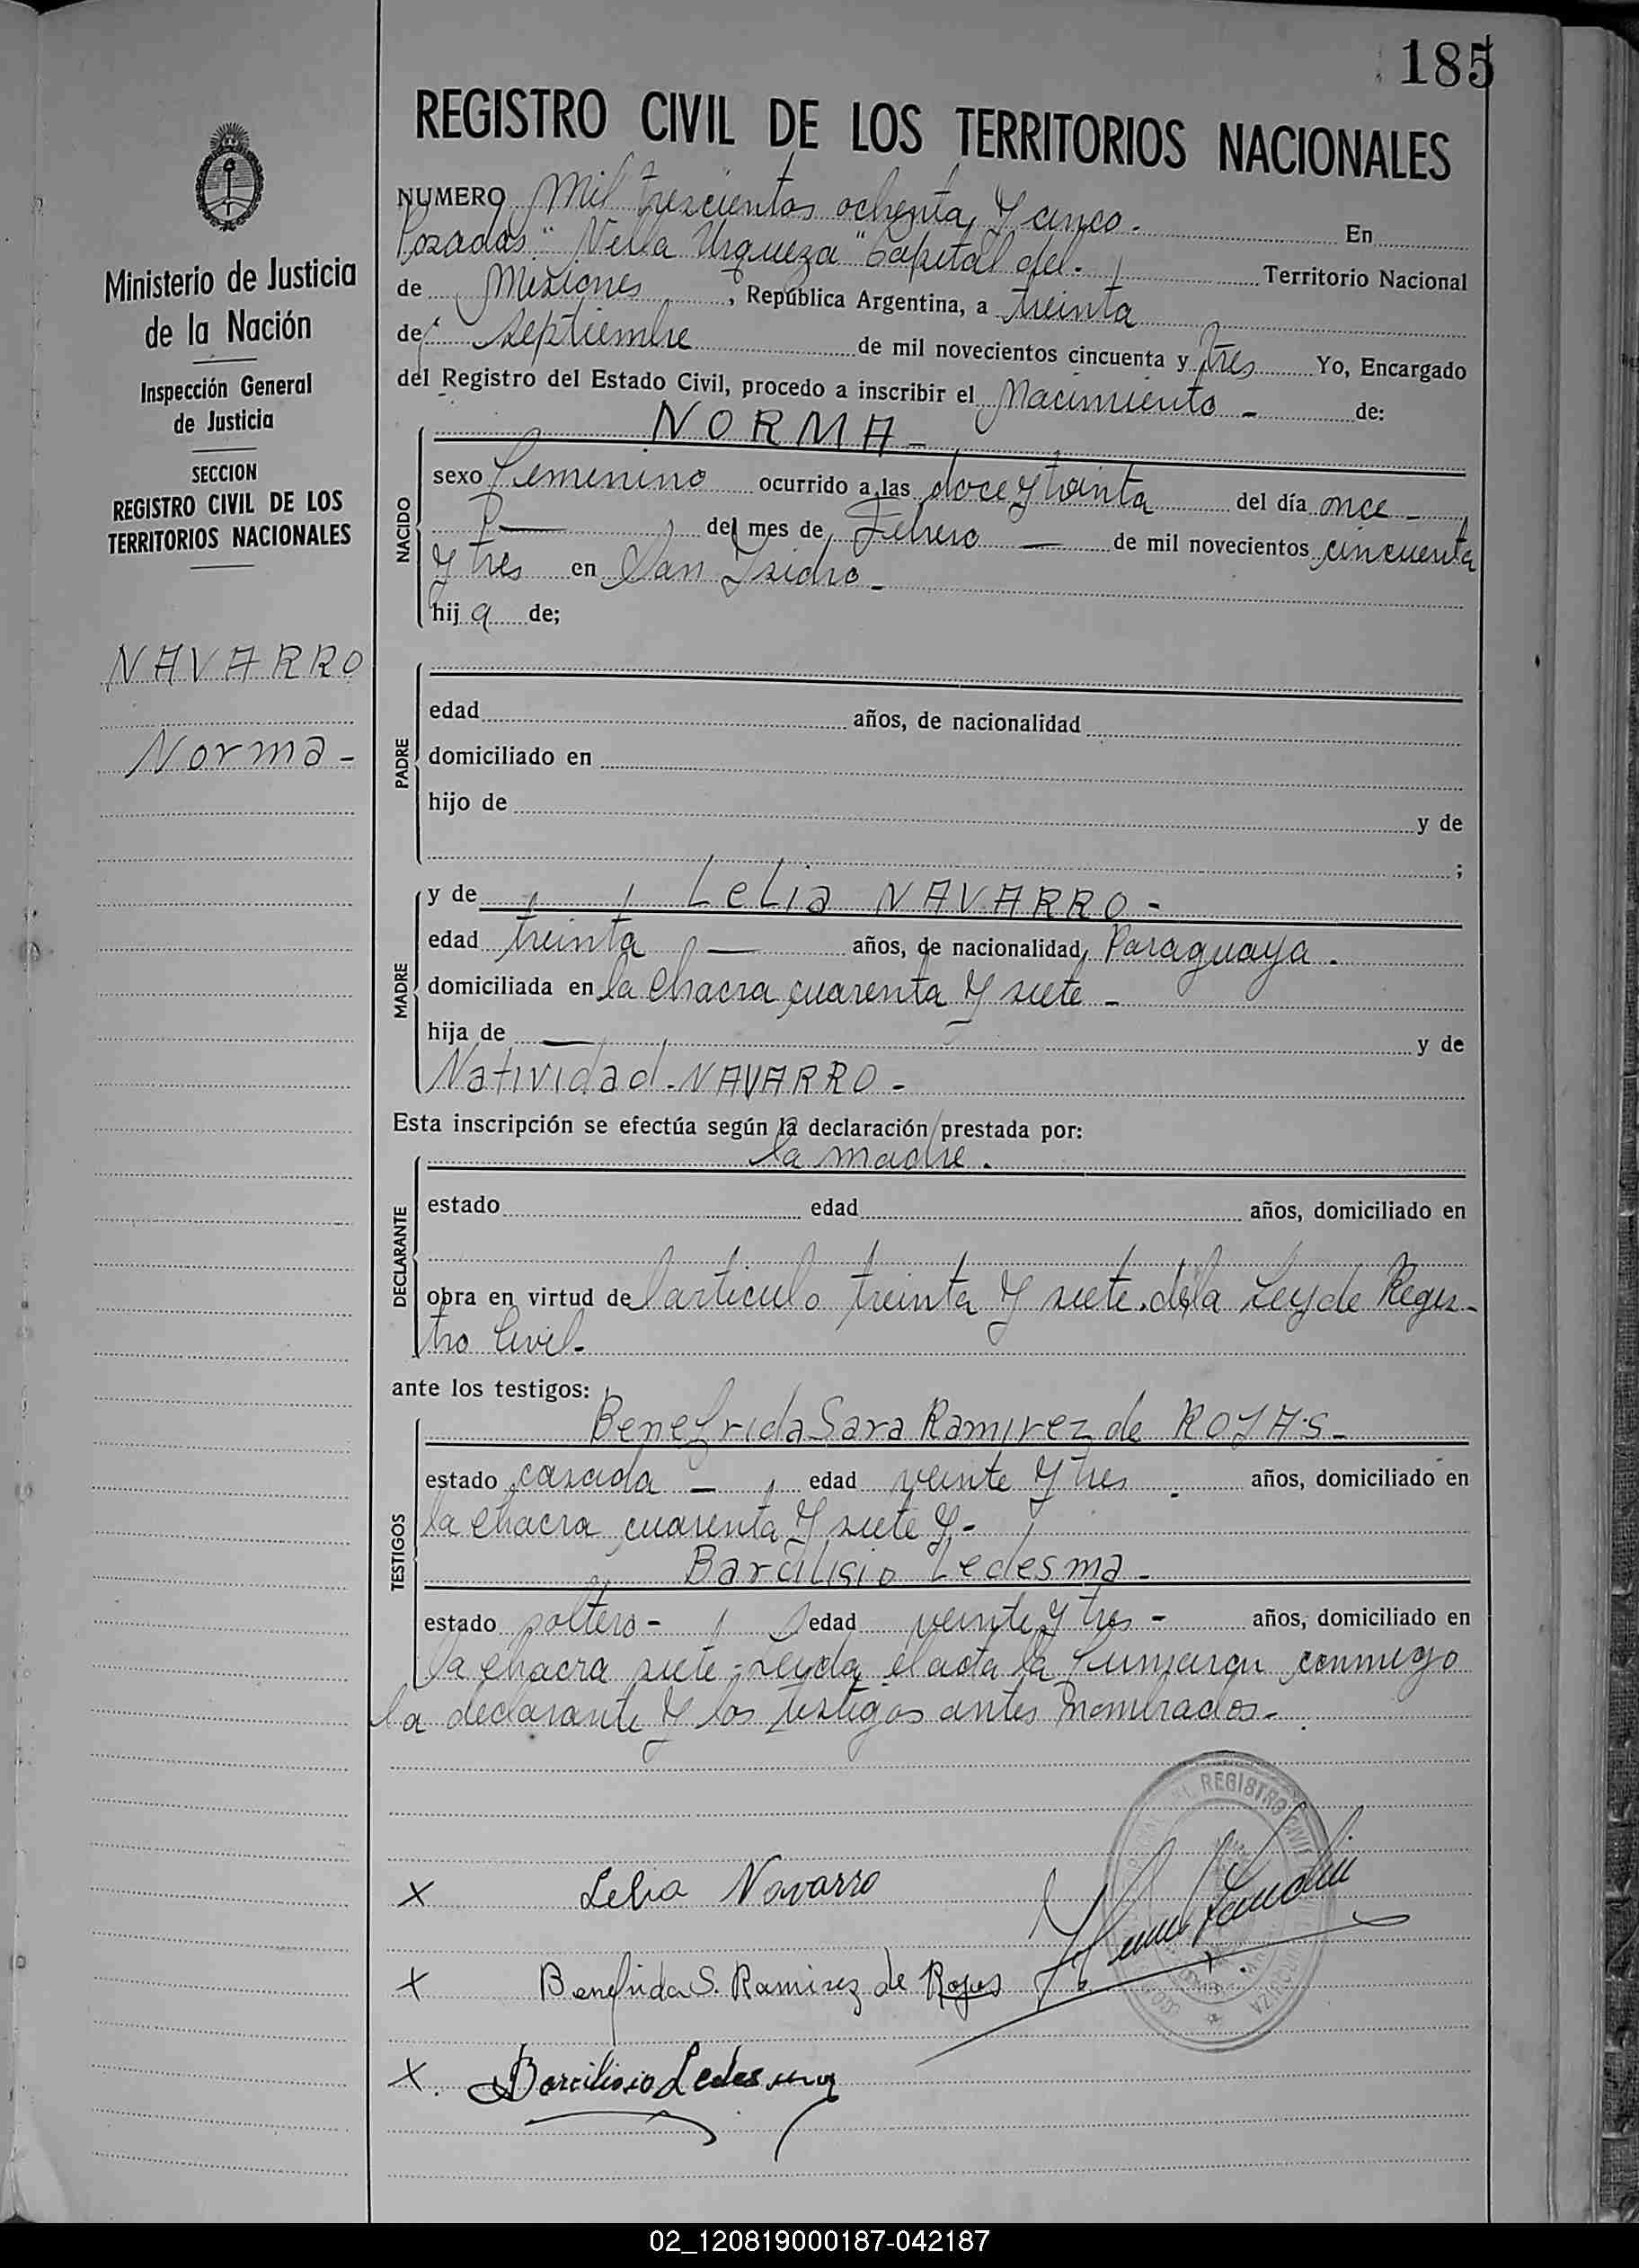 185
REGISTRO CIVIL DE LOS TERRITORIOS NACIONALES
Ministerio de Justicia
de la Nación
Inspección General
de Justicia
SECCION
REGISTRO CIVIL DE LOS
TERRITORIOS NACIONALES
NAVARRO
Norma -
NUMERO Mil trescientos ochenta y cinco. - En
Posadas "Villa Urquiza" Capital del. Territorio Nacional
de Misiones, República Argentina, a treinta
de septiembre de mil novecientos cincuenta y tres Yo, Encargado
del Registro del Estado Civil, procedo a inscribir el Nacimiento - de:
NORMA -
NACIDO
sexo femenino ocurrido a las doce y treinta del día once -
del mes de Febrero - de mil novecientos cincuenta
y tres en San Isidro -
hija de;
PADRE
edad años, de nacionalidad
domiciliado en
hijo de y de
;
MADRE
y de Lelia NAVARRO -
edad treinta - años, de nacionalidad Paraguaya.
domiciliada en la chacra cuarenta y siete -
hija de - y de
Natividad NAVARRO -
Esta inscripción se efectúa según la declaración prestada por:
la madre.
DECLARANTE
estado edad años, domiciliado en
obra en virtud del articulo treinta y siete de la Ley de Regis-
tro Civil -
ante los testigos:
TESTIGOS
Benefrida Sara Ramirez de ROJAS -
estado casada - edad veinte y tres años, domiciliado en
la chacra cuarenta y siete y -
Barcilisio Ledesma -
estado soltero - edad veinte y tres - años, domiciliado en
la chacra siete - Leyda el acta la firmaron conmigo
la declarante y los testigos antes nombrados -
REGISTRO CIVIL
x Lelia Navarro
x Benefrida S. Ramirez de Rojas
x. Barcilisio Ledesma
02_120819000187-042187